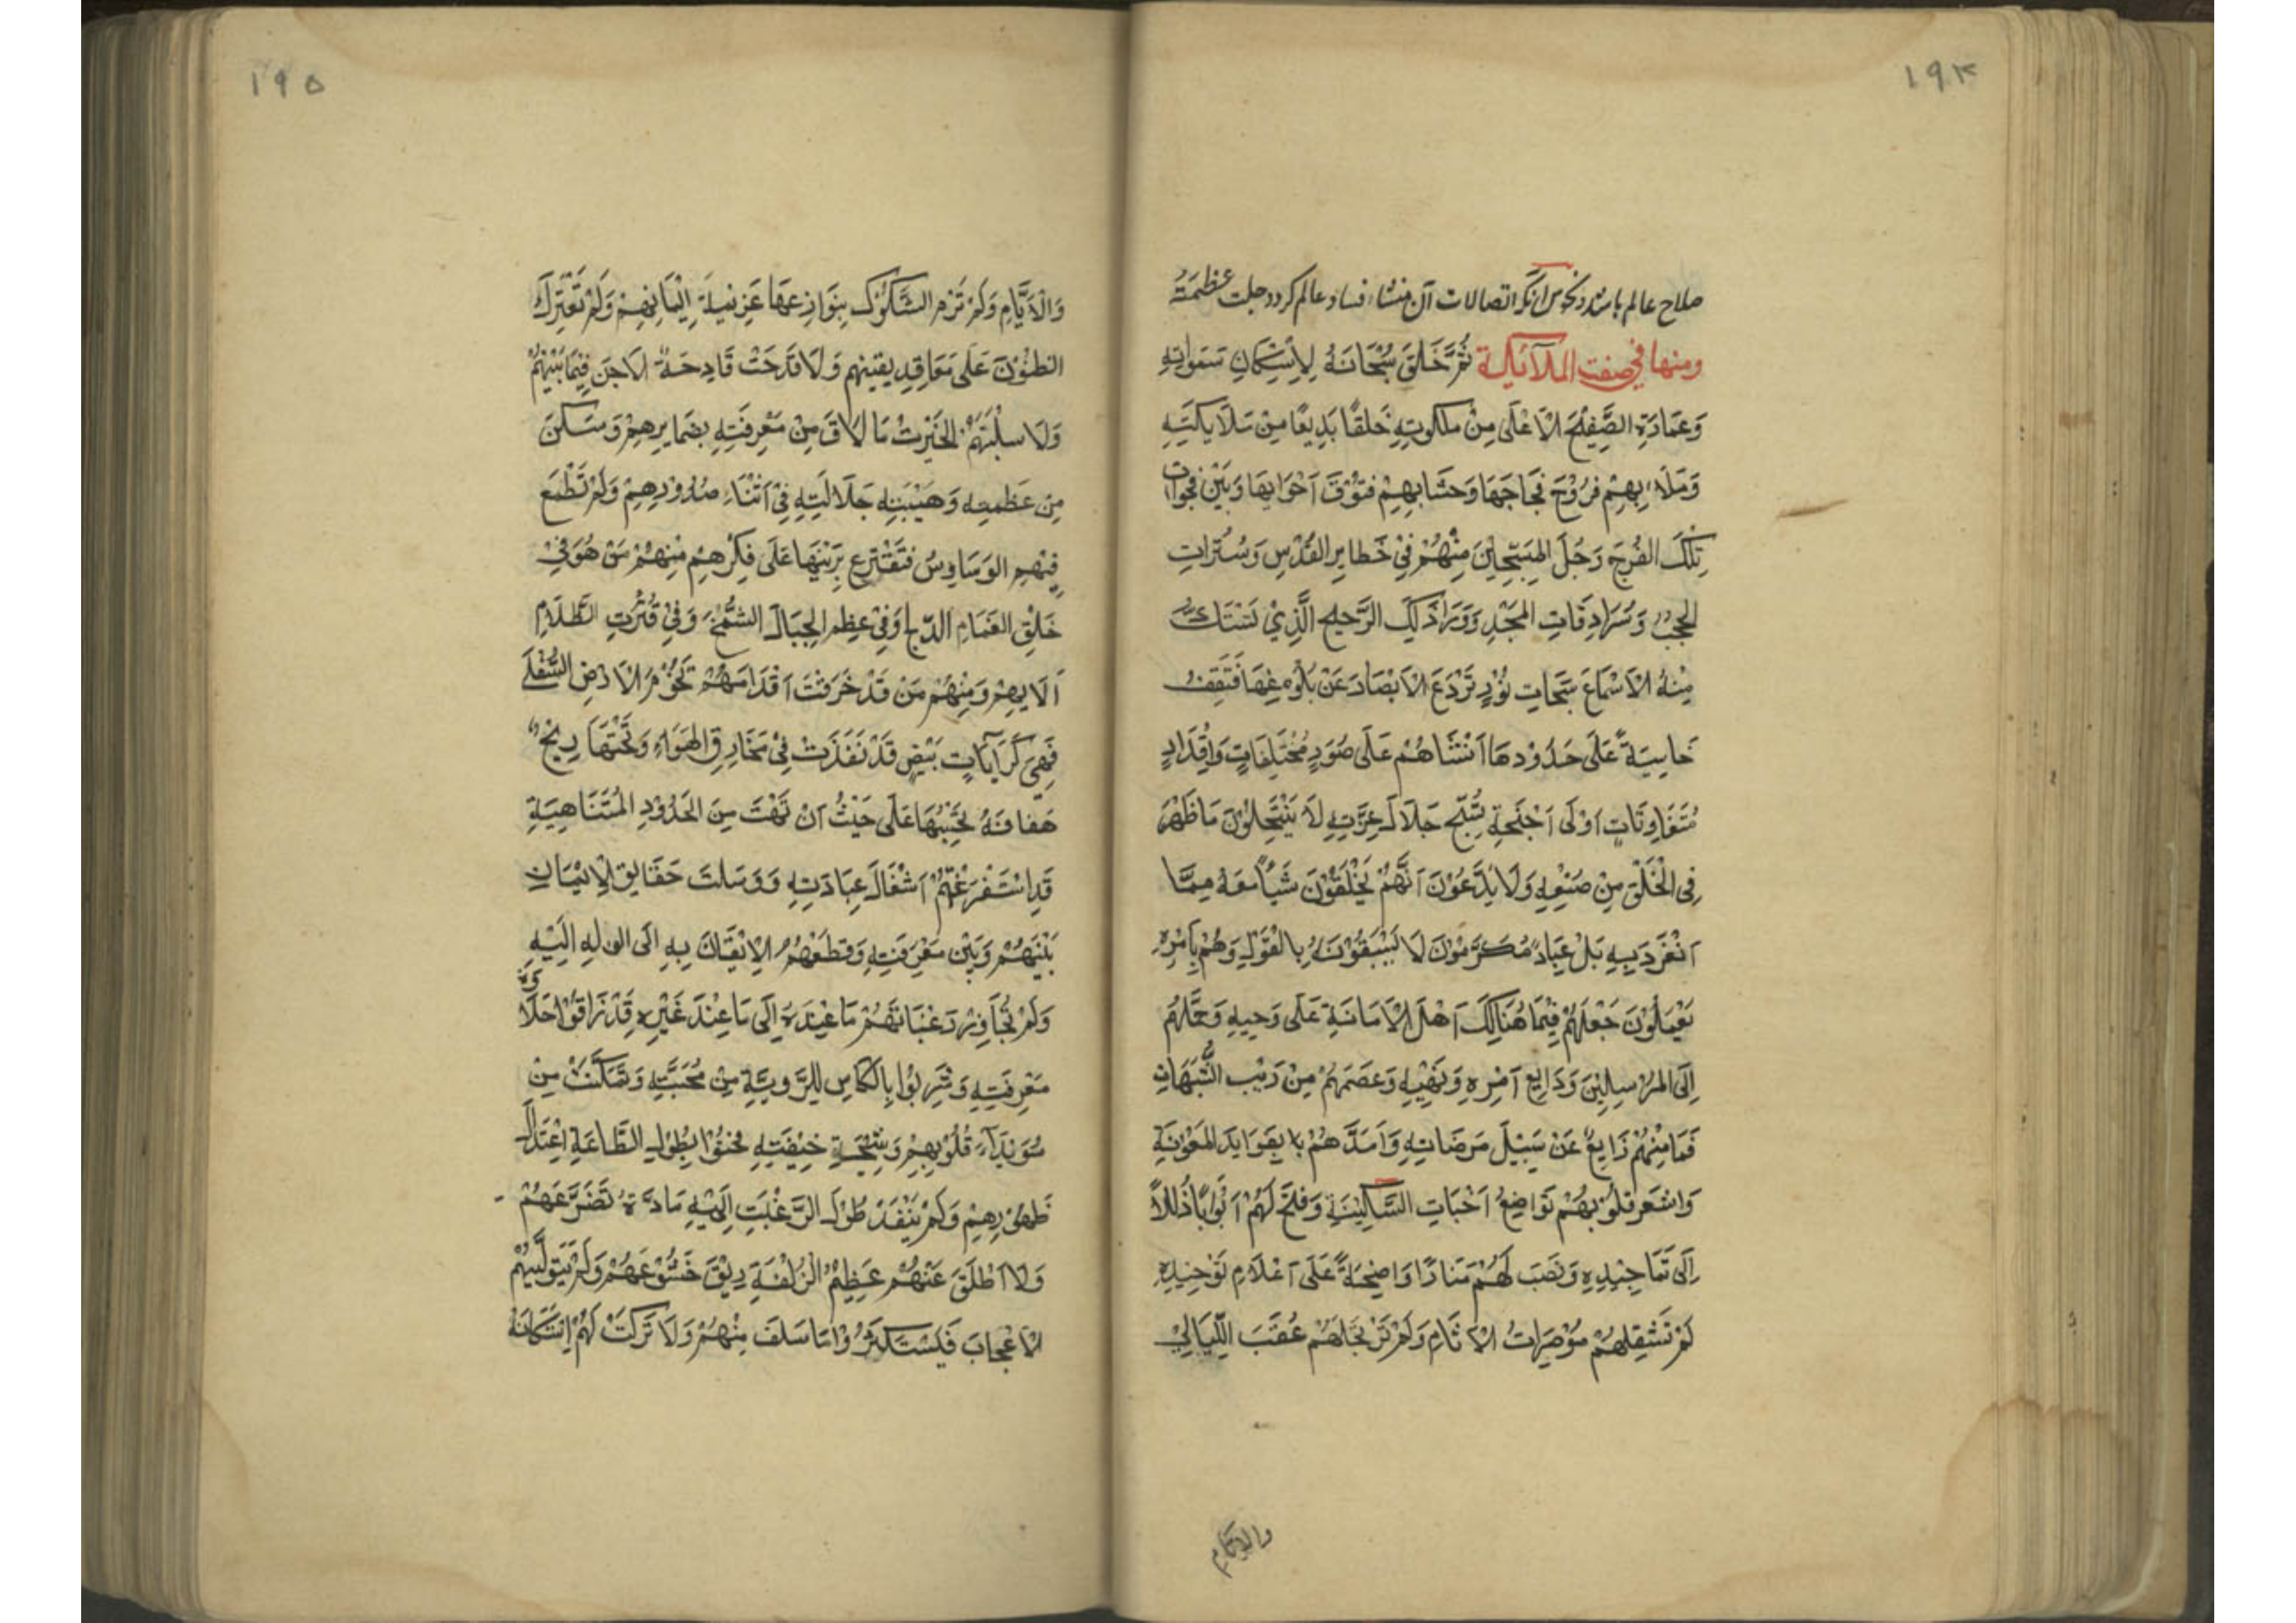 ١٩٤
صلاح عالم باشد و نحوس انكر اتصالات آن منشاء فساد عالم كردد جلت عظمته
ومنها في صفت الملآئكة ثُمَّ خَلَقَ سُبْحَانَهُ لِاِسْكَانِ سَمَوَاتِهِ
وَعِمَارَةِ الصَّفِيْحِ الْاَعْلَى مِنْ مَلَكُوتِهِ خَلْقًا بَدِيْعًا مِنْ مَلَايِكَتِهِ
وَمَلَاءَ بِهِمْ فُرُوْجَ فِجَاجَهَا وَحَشَابِهِمْ فتُوْقَ اَجْوَابِهَا وَبَيْنَ فَجَوَاتِ
تِلْكَ الفُرُجِ زَجُلَ المُسَبِّحِيْنَ مِنْهُمْ فِيْ خَطَايِرِ القُدْسِ وَسُتَرَاتِ
الحُجُبِ وَسُرَادِقَاتِ المَجْدِ وَوَرَآ ذَلِكَ الرَّجِيجِ الَّذِيْ تَسْتَكُّ
مِنْهُ الْاَسْمَاعَ سَبَحَاتِ نُوْرٍ تَرْدَعَ الْاَبْصَارَ عَنْ بُلُوْغِهَا فَتَقِفُ
خَاسِيَةً عَلَى حُدُوْدِهَا اَنْشَاهُمْ عَلَى صُوَرٍ مُخْتَلِفَاتٍ وَاَقْدَارٍ
مُتَفَاوِتَاتٍ اُوْلَى اَجْنِحَةٍ تُسَبِّحُ جَلَالَ عِزَّتِهِ لَا يَنْتَحِلُوْنَ مَا ظَهَرَ
فِى الْخَلْقِ مِنْ صُنْعِهِ وَلَا يَدَّعُوْنَ اَنَّهُمْ يَخْلُقُوْنَ شَيْأً مَعَهُ مِمَّا
اَنْفَرَدَ بِهِ بَلْ عِبَادٌ مُكَرَّمُوْنَ لَا يَسْبِقُوْنَهُ بِالْقَوْلِ وَهُمْ بِاَمْرِهِ
يَعْمَلُوْنَ جَعَلَهُمْ فِيْمَا هُنَالِكَ اَهْلَ الْاَمَانَةِ عَلَى وَحْيِهِ وَحَمَّلَهُمْ
اِلَى المُرْسَلِيْنَ وَدَايِعَ اَمْرِهِ وَنَهْيِهِ وَعَصَمَهُمْ مِنْ رَيْبِ الشُّبَهَاتِ
فَمَا مِنْهُمْ زَايِغٌ عَنْ سَبِيْلِ مَرَضَاتِهِ وَاَمَدَّهُمْ بِفَوَايِدِ المَعُوْنَةِ
وَاشْعَرَ قُلُوْبَهُمْ تَوَاضِعُ اَخْبَاتِ السَّكِيْنَةِ وَفَتَحَ لَهُمْ اَبْوَابًا ذُلُلاً
اِلَى تَمَاجِيْدِهِ وَنَصَبَ لَهُمْ مَنَارًا وَاضِحَةً عَلَى اَعْلَامِ تَوْحِيْدِهِ
لَمْ تَشْقِلْهُمْ مُؤْصِرَاتُ الْاٰثَامِ وَلَمْ تَرْتَحِلْهُمْ عُقَبَ اللَّيَالِيْ
والايام
١٩٥
وَالْاَيَّامِ وَلَمْ تَرْمِ الشَّكُوْكُ بِنَوَازِعِهَا عَزِيْمَةَ اِيْمَانِهِمْ وَلَمْ تَعْتَرِكْ
الظُّنُوْنَ عَلَى مَعَاقِدِ يَقِيْنِهِمْ وَلَا قَدَحَتْ قَادِحَةُ الْاِحَنِ فِيْمَا بَيْنَهُمْ
وَلَا سَلَبَتْهُمُ الحَيْرَتُ مَا لَاقَ مِنْ مَعْرِفَتِهِ بِضَمَايِرِهِمْ وَسَكَنَ
مِنْ عَظَمَتِهِ وَهَيْبَتِهِ جَلَالَتِهِ فِيْ اَثْنَاءِ صُدُوْرِهِمْ وَلَمْ تَطْمَعْ
فِيْهِمِ الوَسَاوِسُ فَتَقْتَرِعَ بِرَيْنِهَا عَلَى فِكْرِهِمْ مِنْهُمْ مَنْ هُوَ فِيْ
خَلْقِ الغَمَامِ الدّلج وَفِيْ عِظَمِ الجِبَالِ الشُّمَّخِ وَفِيْ قُتْرَتِ الظَّلَامِ
اَلَايهمْ وَمِنْهُمْ مَنْ قَدْ خَرَقَتْ اَقْدَامَهُمْ تُخُوْمَ الْاَرْضِ السُّفْلَى
فَهِيَ كَرَايَاتٍ بَيْضٍ قَدْ نَفَذَتْ فِيْ مَخَارِقِ الهَوَاءِ وَتَحْتَهَا رِيْحٌ
هَفافَةُ تَحْبِسُهَا عَلَى حَيْثُ انْتَهَتْ مِنَ الحُدُوْدِ المُتَنَاهِيَةِ
قَدِ اسْتَفْرَغَتْهُمْ اَشْغَالَ عِبَادَتِهِ وَوَسَلَتَ حَقَايِقَ الْاِيْمَانِ
بَيْنَهُمْ وَبَيْنَ مَعْرِفَتِهِ وَقَطَعَهُمُ الْاِيْقَانَ بِهِ اِلَى الولهِ اِلَيْهِ
وَلَمْ تُجَاوِزْ رَغَبَاتَهُمْ مَا عِنْدَهُ اِلَى مَا عِنْدَ غَيْرِهِ قَدْ ذَاقُوْا حَلَاوَةَ
مَعْرِفَتِهِ وَشَرِبُوْا بِالْكَاسِ الرَّوِيَّةِ مِنْ مَحَبَّتِهِ وَتَمَكَّنَتْ مِنْ
سُوَيْدَآءِ قُلُوْبِهِمْ وَشِيْجَةِ خِيْفَتِهِ فحَنَوْا بِطُوْلِ الطَّاعَةِ اعْتِدَالَ
ظُهُوْرِهِمْ وَلَمْ يَنْفَدْ طُوْلَ الرَّغْبَتِ اِلَيْهِ مَادَّةُ تَضَرَّعَهُمْ
وَلَا اَطْلَقَ عَنْهُمْ عَظِيْمُ الزُّلْفَةِ رِبَقَ خَشُوْعَهُمْ وَلَمْ يَتَوَلَّيهُمْ
الْاَعْجَابَ فَيَسْتَكْثِرُوْا مَا سَلَفَ مِنْهُمْ وَلَا تَرَكَتْ لَهُمْ اِسْتَكَانَةُ